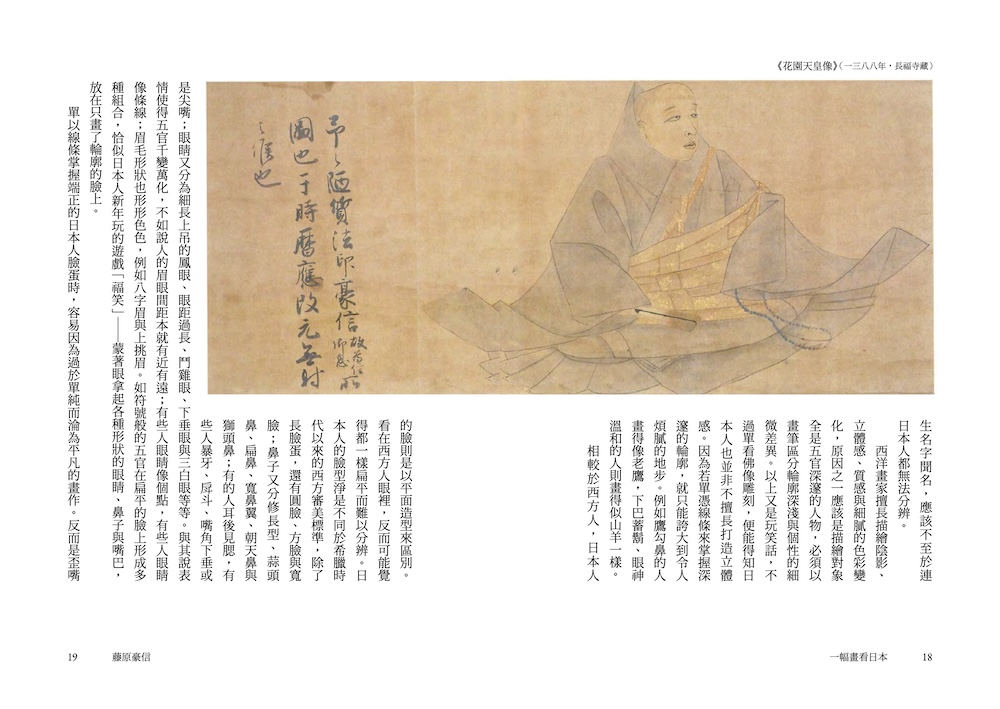 《花園天皇像》(一三八八年・長福寺藏)
陋質法印豪信
圖也于時曆應改元無射
生名字聞名,應該不至於連
日本人都無法分辨。
西洋畫家擅長描繪陰影、
立體感、質感與細膩的色彩變
化,原因之一應該是描繪對象
全是五官深邃的人物,必須以
畫筆區分輪廓深淺與個性的細
微差異。以上又是玩笑話,不
過單看佛像雕刻,便能得知日
本人也並非不擅長打造立體
感。因為若單憑線條來掌握深
邃的輪廓,就只能誇大到令人
煩膩的地步。例如鷹勾鼻的人
畫得像老鷹,下巴蓄鬍、眼神
溫和的人則畫得似山羊一樣。
相較於西方人,日本人
的臉則是以平面造型來區別。
看在西方人眼裡,反而可能覺
得都一樣扁平而難以分辨。日
本人的臉型淨是不同於希臘時
代以來的西方審美標準,除了
長臉蛋,還有圓臉、方臉與寬
臉;鼻子又分修長型、蒜頭
鼻、扁鼻、寬鼻翼、朝天鼻與
獅頭鼻;有的人耳後見腮,有
些人暴牙、戽斗、嘴角下垂或
是尖嘴;眼睛又分為細長上吊的鳳眼、眼距過長、鬥雞眼、下垂眼與三白眼等等。與其說表
情使得五官千變萬化,不如說人的眉眼間距本就有近有遠;有些人眼睛像個點,有些人眼睛
像條線;眉毛形狀也形形色色,例如八字眉與上挑眉。如符號般的五官在扁平的臉上形成多
種組合,恰似日本人新年玩的遊戲「福笑」——蒙著眼拿起各種形狀的眼睛、鼻子與嘴巴,
放在只畫了輪廓的臉上。
單以線條掌握端正的日本人臉蛋時,容易因為過於單純而淪為平凡的畫作。反而是歪嘴
一幅畫看日本 18
19 藤原豪信